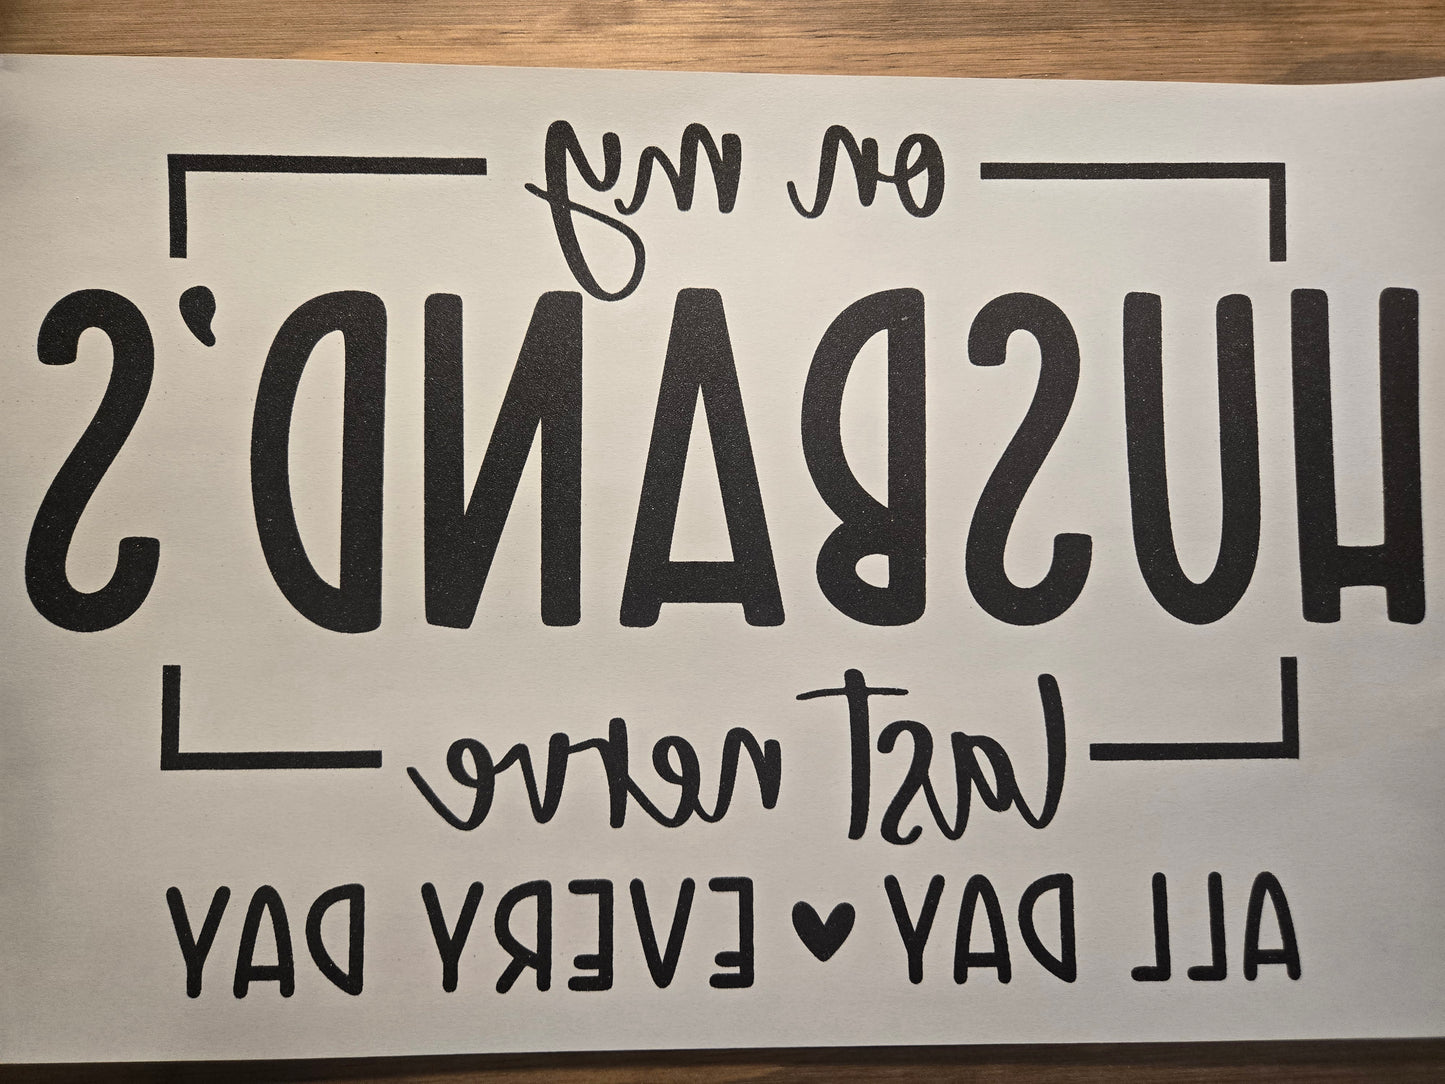 on my
HUSBAND'S
last nerve
ALL DAY ♥ EVERY DAY